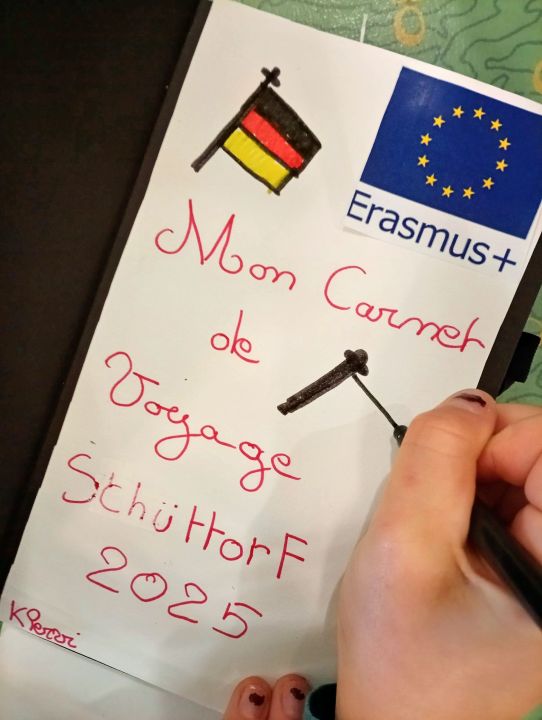 Erasmus+
Mon Carnet
de
Voyage
SchüttorF
2025